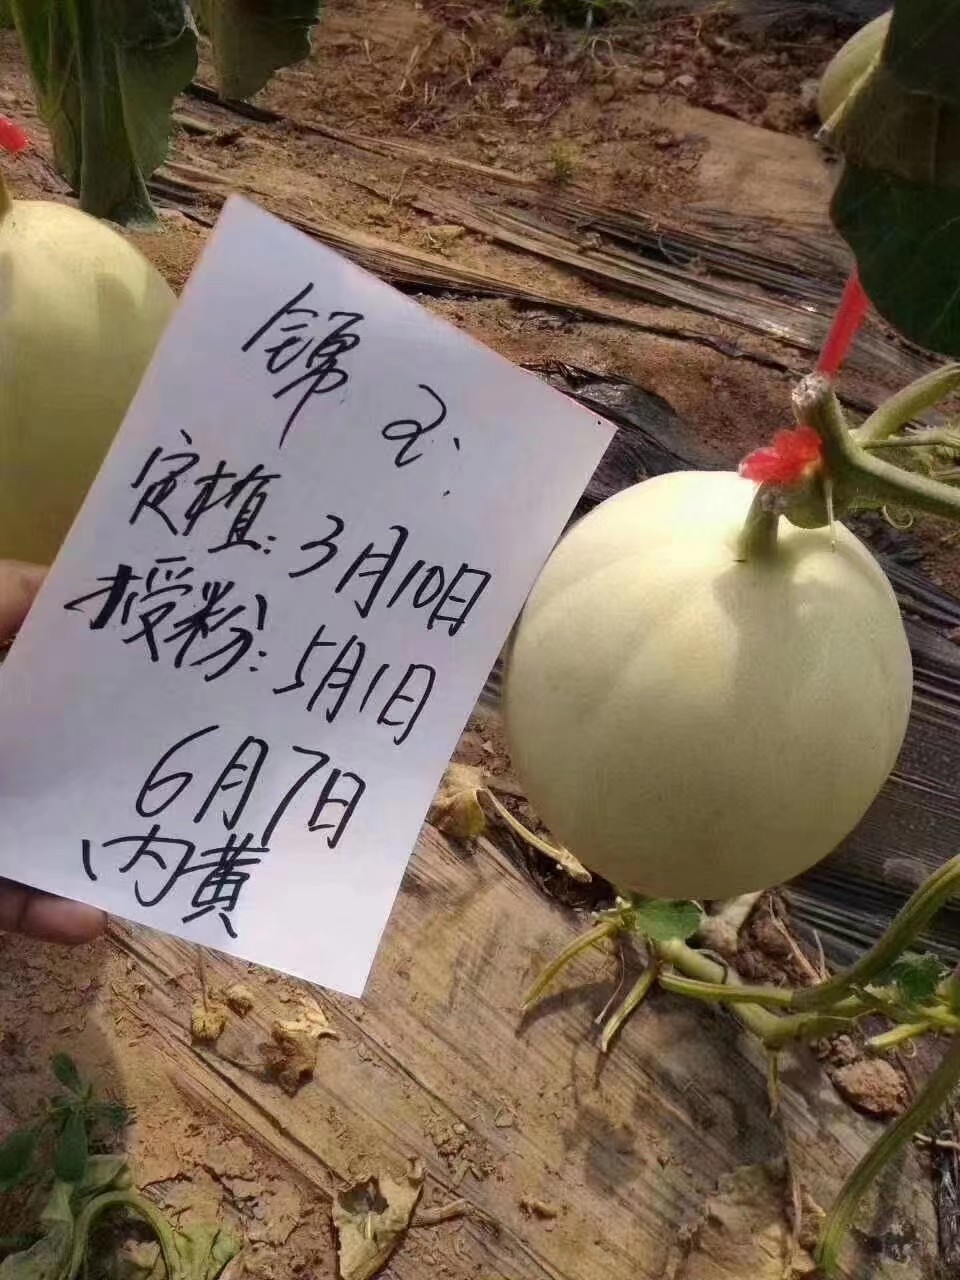 定植：3月10日
授粉：5月1日
6月7日
内黄